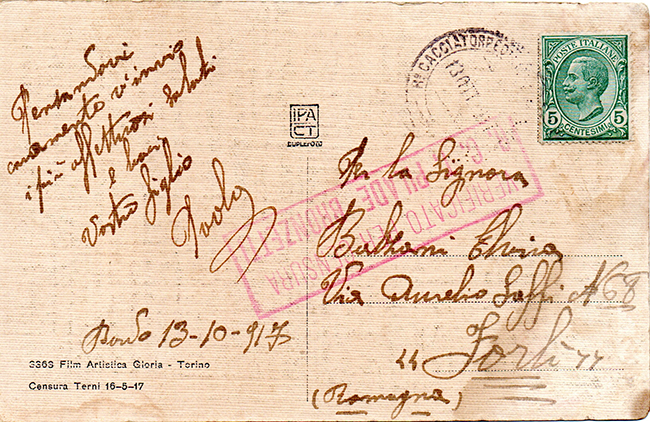 Pensandovi
caramente v'invio
i più affettuosi saluti
e baci
Vostro figlio
Paolo
Bordo 13-10-917
3363 Film Artistica Gloria - Torino
Censura Terni 16-5-17
IPA
CT
DUPLEFOTO
Rª CACCIATORPED
POSTE ITALIANE
5 5
CENTESIMI
VERIFICATO
CENSURA
PILADE BRONZETTI
Per la Signora
Balzani Elvira
Via Aurelio Saffi N 68
" Forlì "
(Romagna)